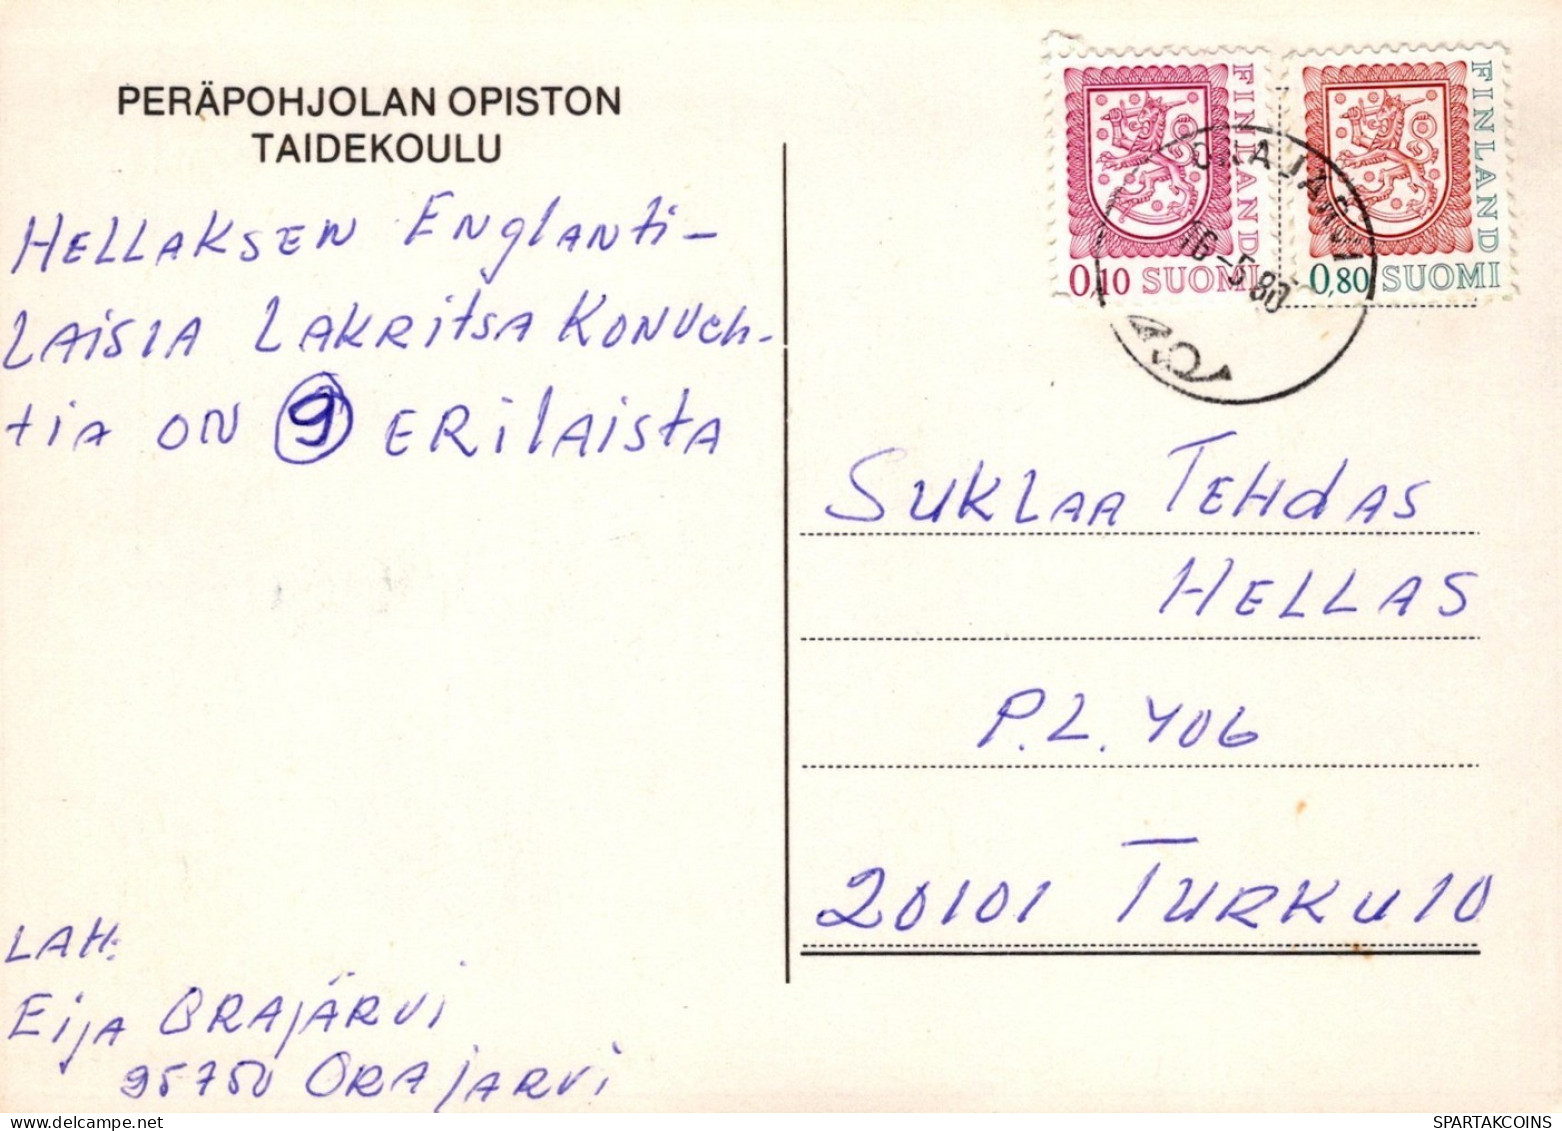 PERÄPOHJOLAN OPISTON
TAIDEKOULU
HELLAKSEN ENglANti-
LAISIA LAKRitSA KONVEh-
tiA ON 9 ERilAistA
LAH:
EijA ORAJÄRVi
95750 ORAJARVi
FINLAND
0,10 SUOMI
FINLAND
0,80 SUOMI
ORAJÄRVI
16-5.80
SUKLAA TEHdAS
HELLAS
P.L. 406
20101 TURKU 10
SPARTAKCOINS